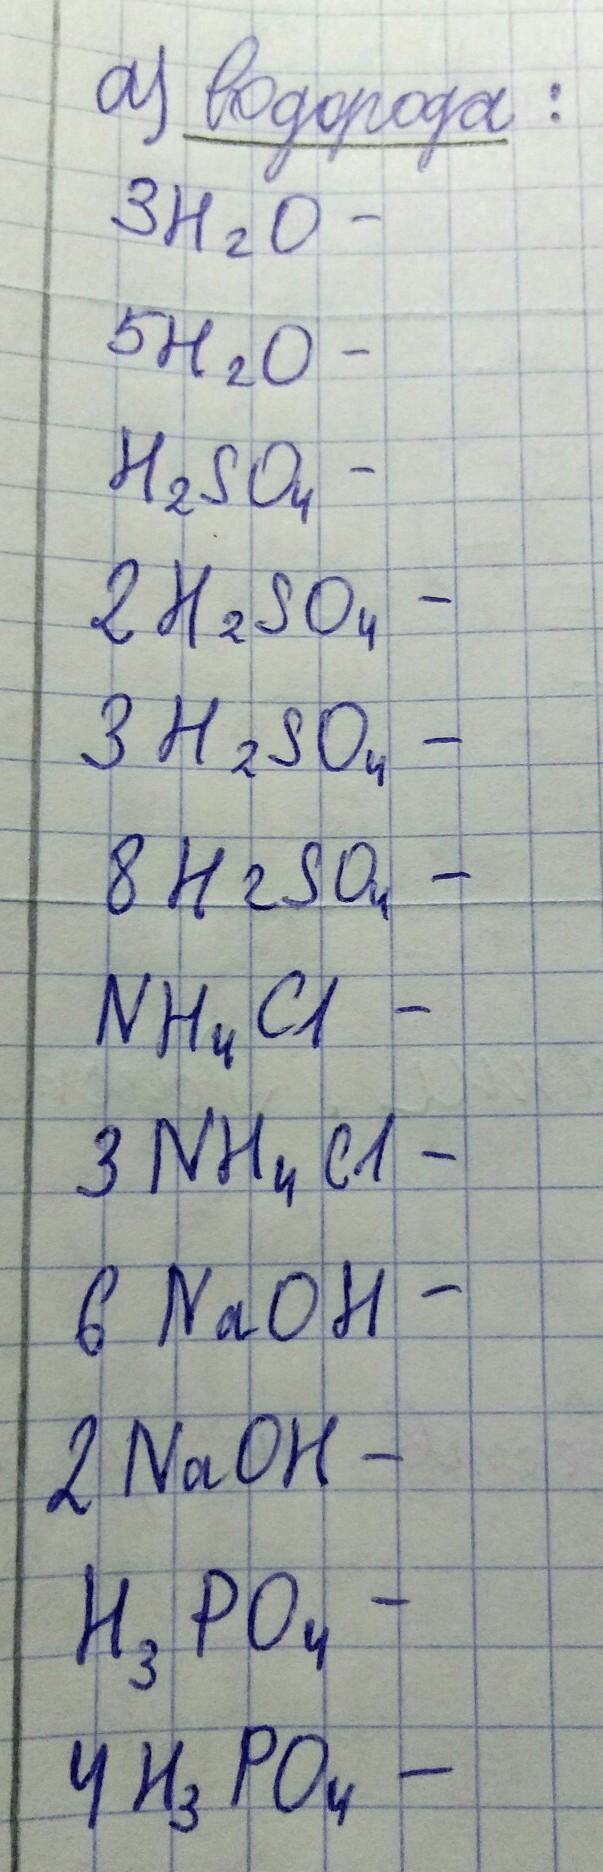 а) водорода:
3H₂O -
5H₂O -
H₂SO₄ -
2H₂SO₄ -
3H₂SO₄ -
8H₂SO₄ -
NH₄Cl -
3NH₄Cl -
6NaOH -
2NaOH -
H₃PO₄ -
4H₃PO₄ -